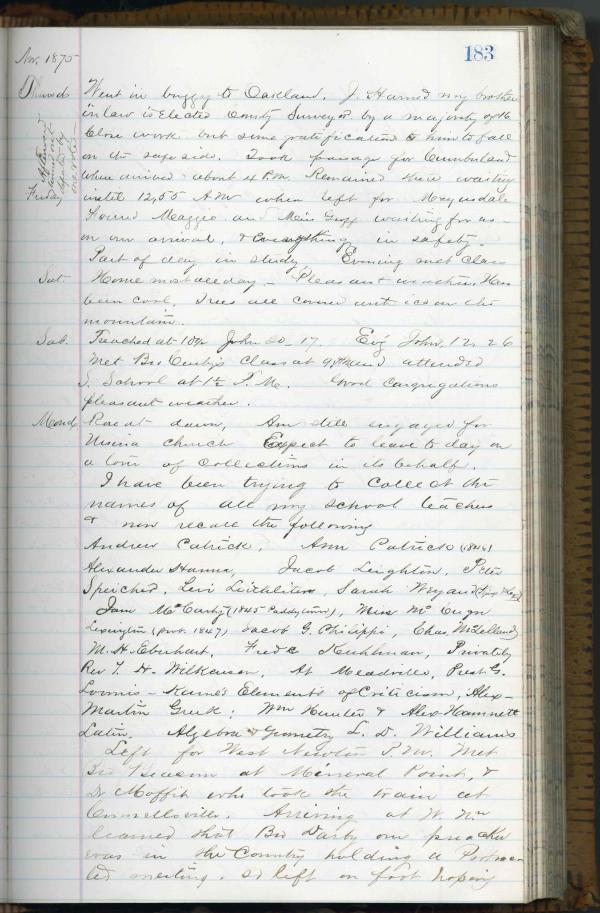 183
Nov, 1875
Thursd Went in buggy to Oakland. J. Harned my brother
in law is Elected County Surveyor by a majority of 16
Close work but some gratification to him to fall
on the safe side. Took passage for Cumberland
where arrived about 4 P.M. Remained there waiting
Friday until 12,55 A.M. when left for Meyersdale
Found Maggie and Miss waiting for us
on our arrival, & Everything in safety.
Part of day in study Evening met Class
Sat. Home most all day - Pleasant weather. Has
been cool, Trees all covered with ice on the
mountain.
Sab. Preached at 10½ John 20. 17. Ev'g John. 12, 26
Met Bro Curty's Class at 9 and attended
S. School at 1½ P.M. Good Congregations
pleasant weather.
Mond Rose at dawn, Am still engaged for
Ursina Church Expect to leave to day on
a tour of collections in its behalf.
I have been trying to Collect the
names of all my school teachers
& now recall the following
Andrew Patrick, Ann Patrick (1846)
Alexander Hanna, Jacob Leighton, Peter
Speicher, Levi Lichliter, Sarah Weyand
Jane McCarty (1845 Paddytown), Miss McCugn
Lexington (prob. 1847) Jacob G. Philippi, Chas. McClelland
M. H. Eberhart, Fred C Kuhlman, Privately
Rev T. H. Wilkinson, At Meadville, Prest G.
Loomis - Kame's Elements of Criticism, Alex-
Martin Greek; Wm Hunter & Alex Hamnett
Latin. Algebra & Geometry L. D. Williams
Left for West Newton P.M. Met
Bro at Mineral Point, &
Dr Moffit who took the train at
Connellsville. Arriving at W. Ntn
learned that Bro Darby our preacher
was in the Country holding a Protrac-
ted meeting. So left on foot hoping